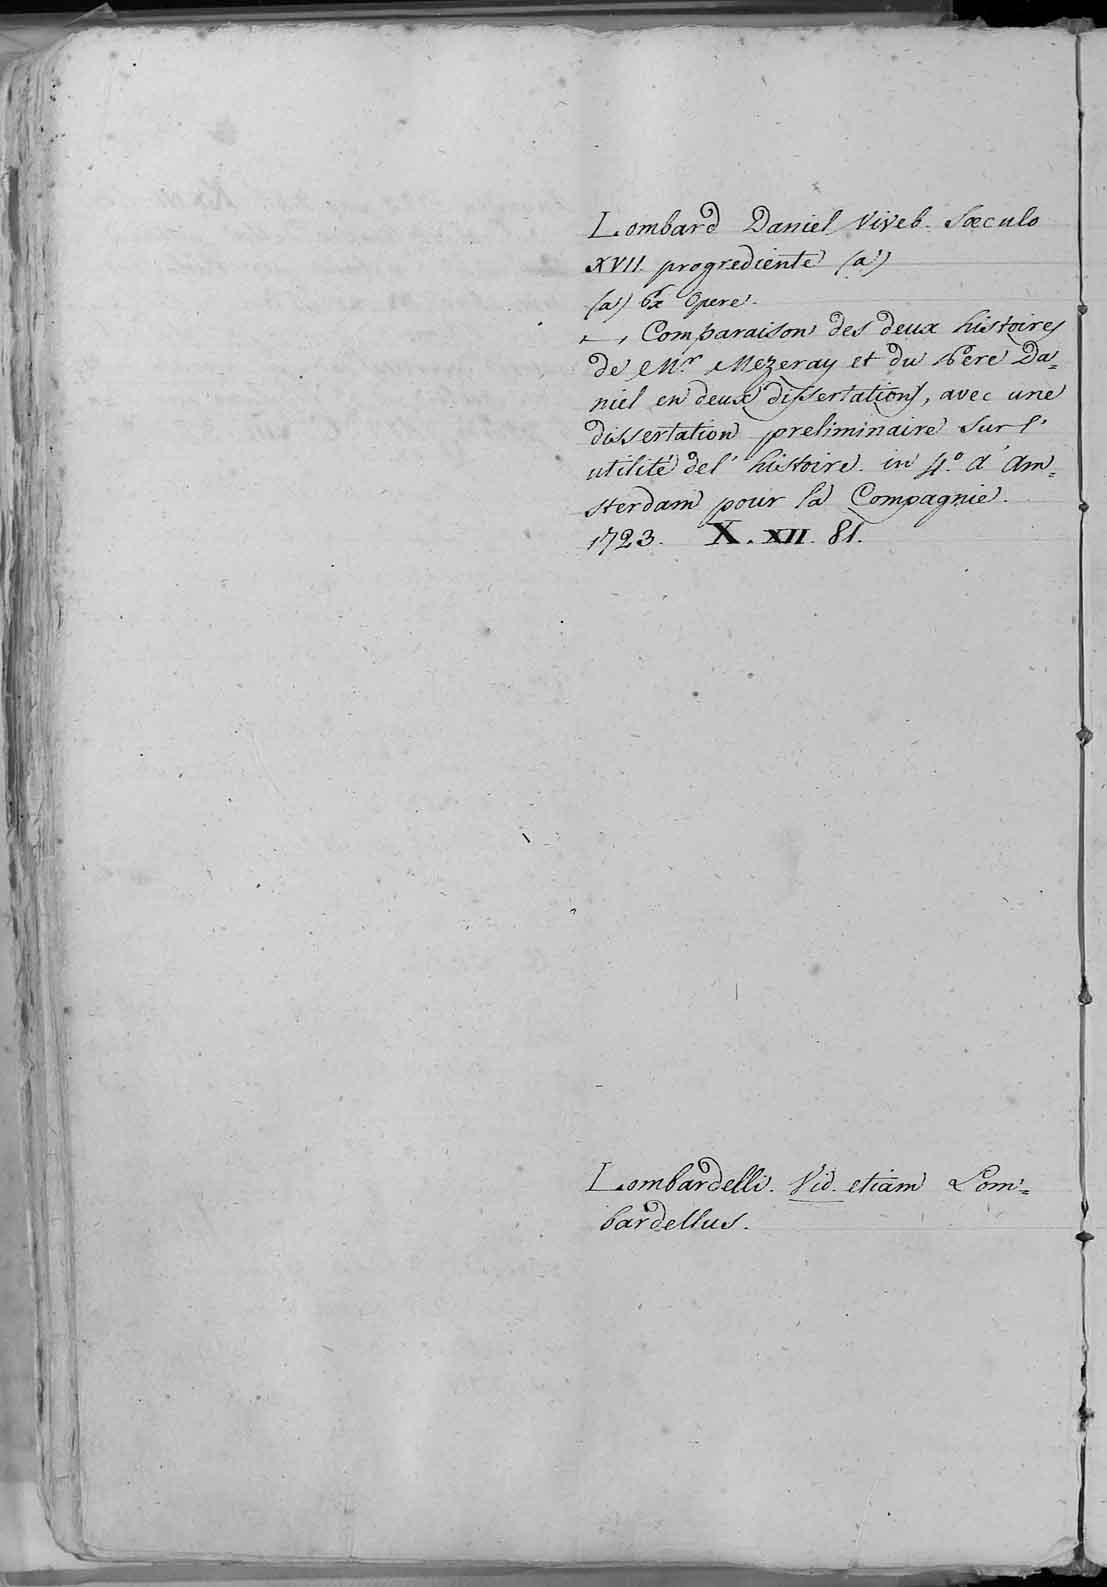 Lombard Daniel Viveb. Sæculo
XVII. progrediente (a)
(a) Ex Opere.
—, Comparaison des deux histoires
de Mr. Mezeray et du Pere Da=
niel en deux dissertations, avec une
dissertation preliminaire sur l'
utilité del' histoire. in 4.º a Am=
sterdam pour la Compagnie.
1723. X. XII. 81.
Lombardelli. Vid. etiam Lom=
bardellus.